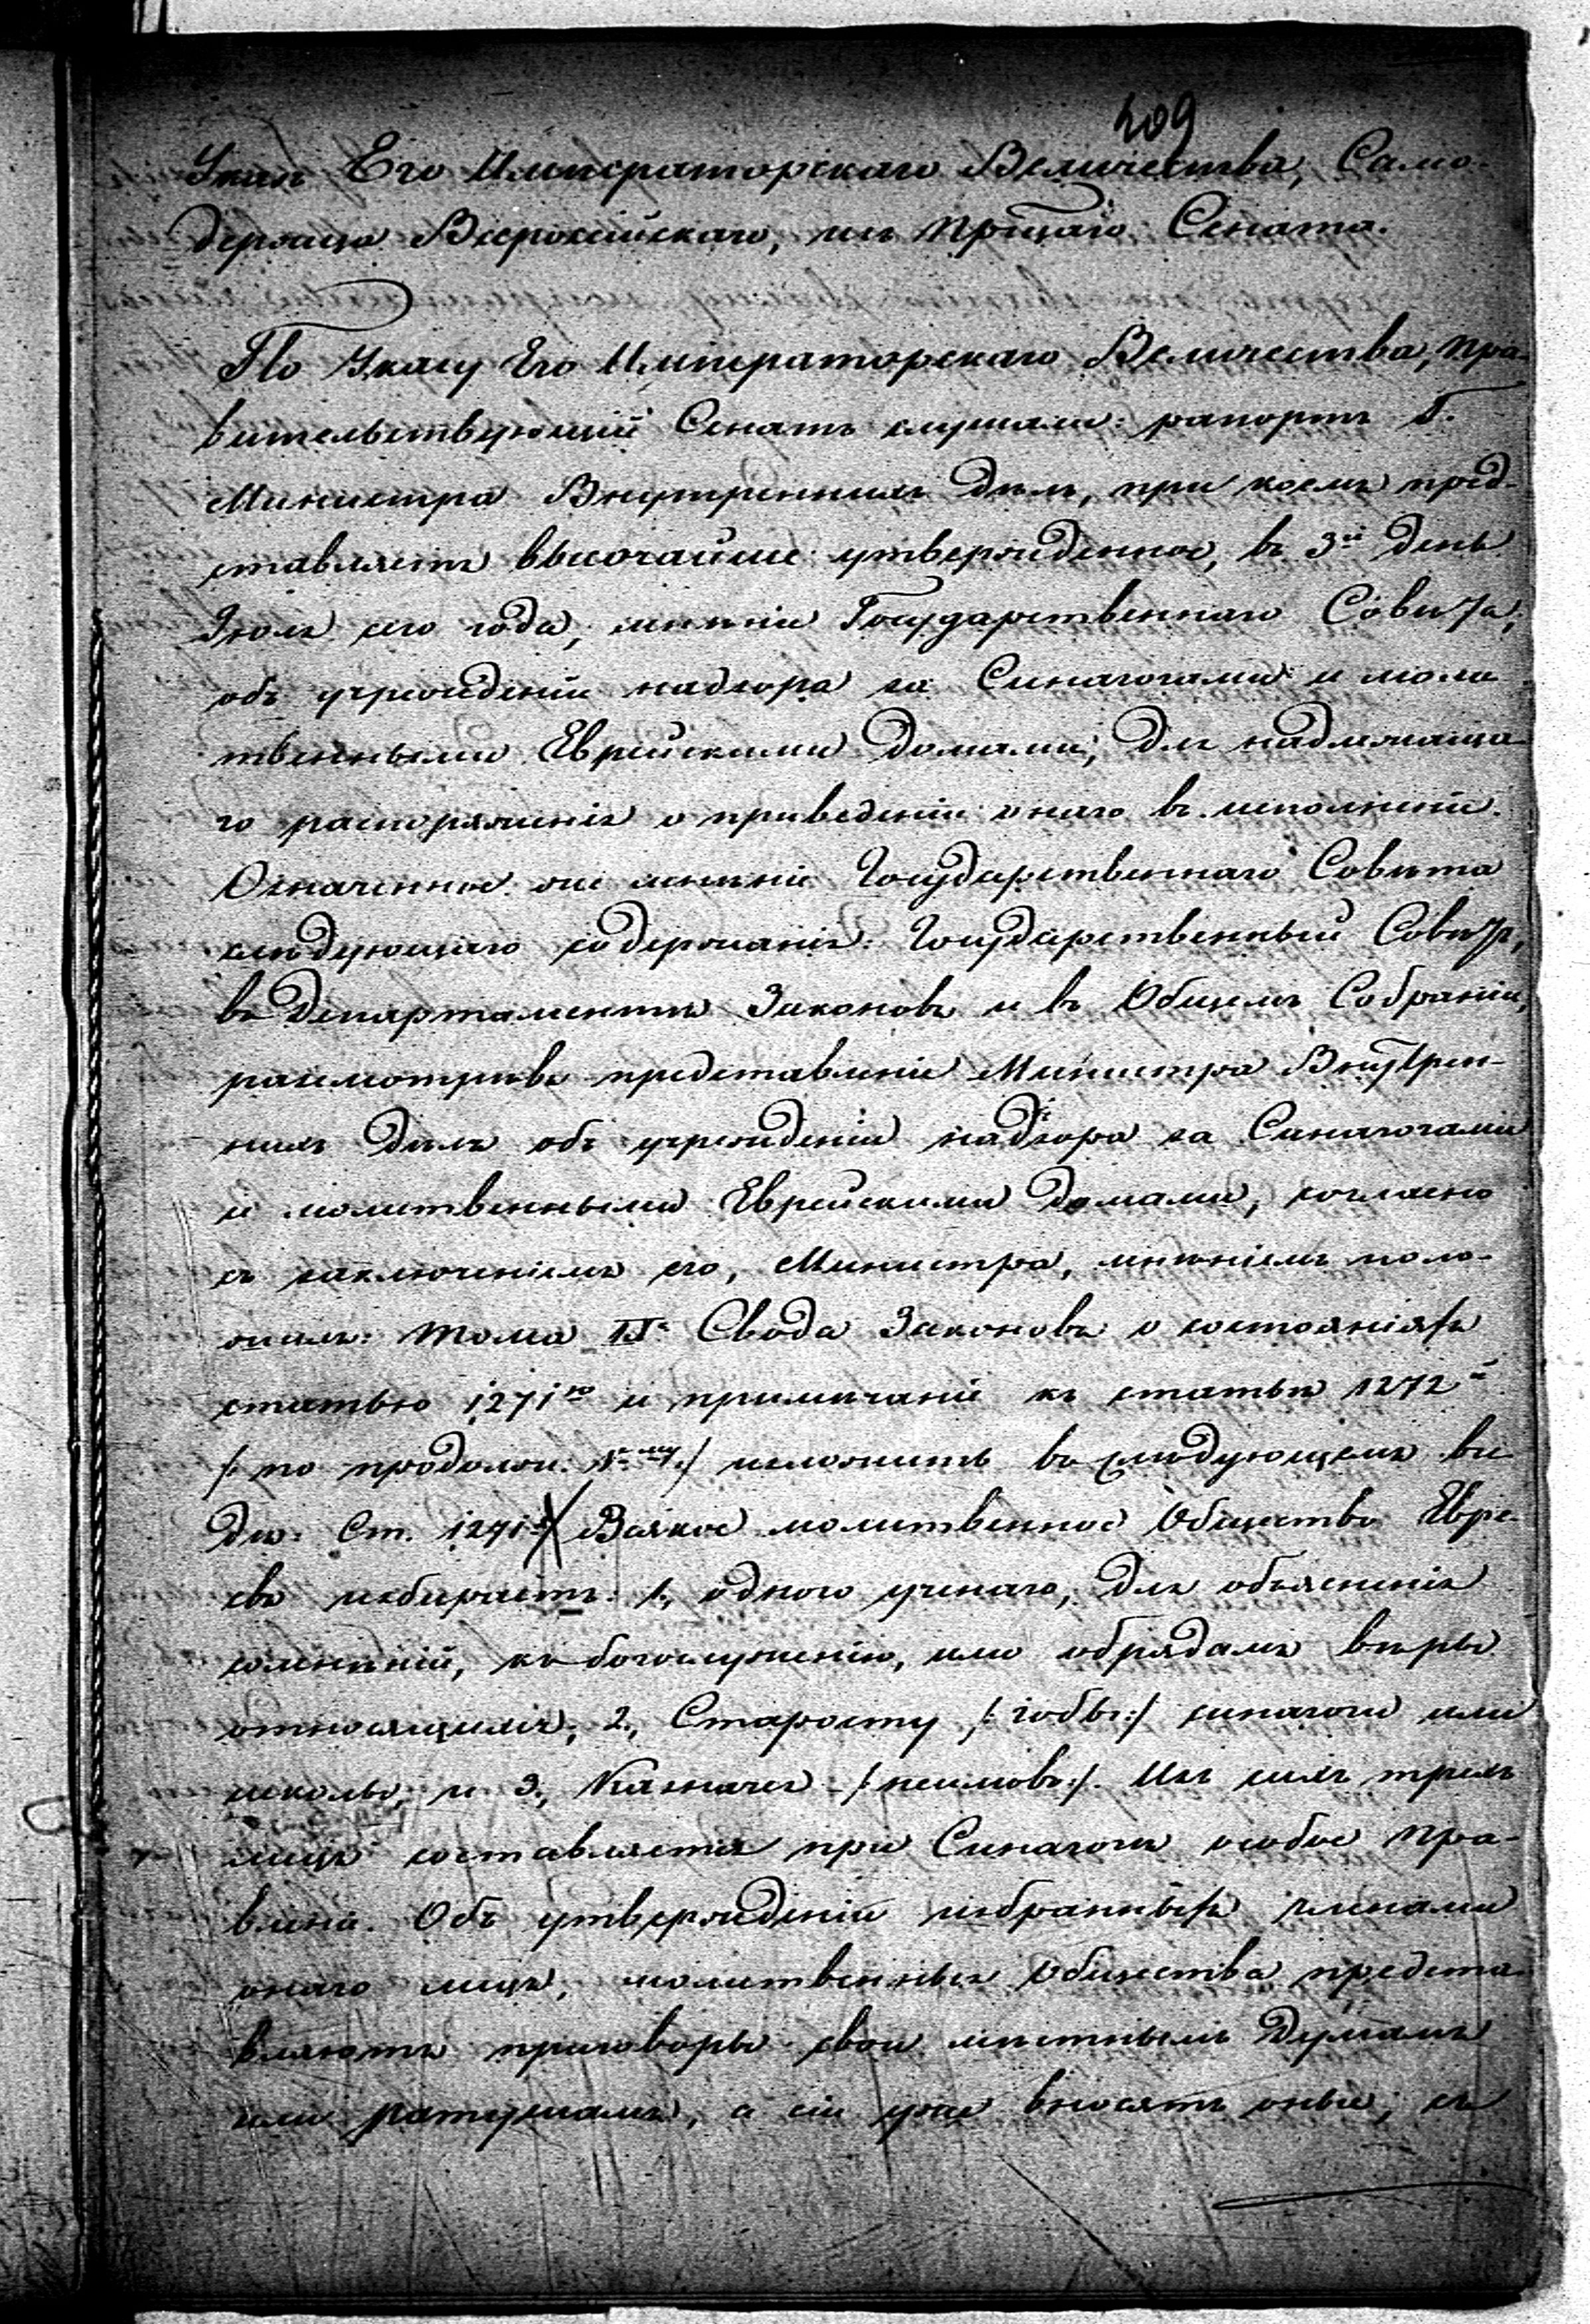 209
Указъ Его Императорскаго Величества, Само-
держца Всероссійскаго, изъ Прщаго Сената.
По Указу Его Императорскаго Величества, Пра-
вительствующій Сенатъ слушали: рапортъ Г.
Министра Внутреннихъ Дѣлъ, при коемъ пред-
ставляетъ Высочайше утвержденное, въ 3й день
Іюля сего года, мнѣніе Государственнаго Совѣта,
объ учрежденіи надзора за Синагогами и моли-
твенными Еврейскими домами, для надлежаща-
го распоряженія о приведеніи онаго въ исполненіе.
Означенное же мнѣніе Государственнаго Совѣта
слѣдующаго содержанія: Государственный Совѣтъ,
въ Департаментѣ Законовъ и въ Общемъ Собраніи,
разсмотрѣвъ представленіе Министра Внутрен-
нихъ Дѣлъ объ учрежденіи надзора за Синагогами
и молитвенными Еврейскими домами, согласно
съ заключеніемъ его, Министра, мнѣніемъ поло-
жилъ: Тома IХ Свода Законовъ о состояніяхъ
статью 1271ю и примѣчаніе къ статьѣ 1272й
/: по продолж. :/ изложить въ слѣдующемъ ви-
дѣ: Ст. 1271я Всякое молитвенное Общество Евре-
евъ избираетъ: 1., одного ученаго, для объясненія
сомнѣній, къ богослуженію, или обрядамъ вѣры
относящихся; 2., Старосту /: габбе :/ синагоги или
школы, и 3., Казначея /: неимовъ :/. Изъ сихъ трехъ
лицъ составляется при Синагогѣ особое Пра-
вленіе. Объ утвержденіи избранныхъ членами
онаго лицъ, молитвенныя Общества предста-
вляютъ приговоры свои мѣстнымъ Думамъ
или ратушамъ, а сіи уже вносятъ оные, съ